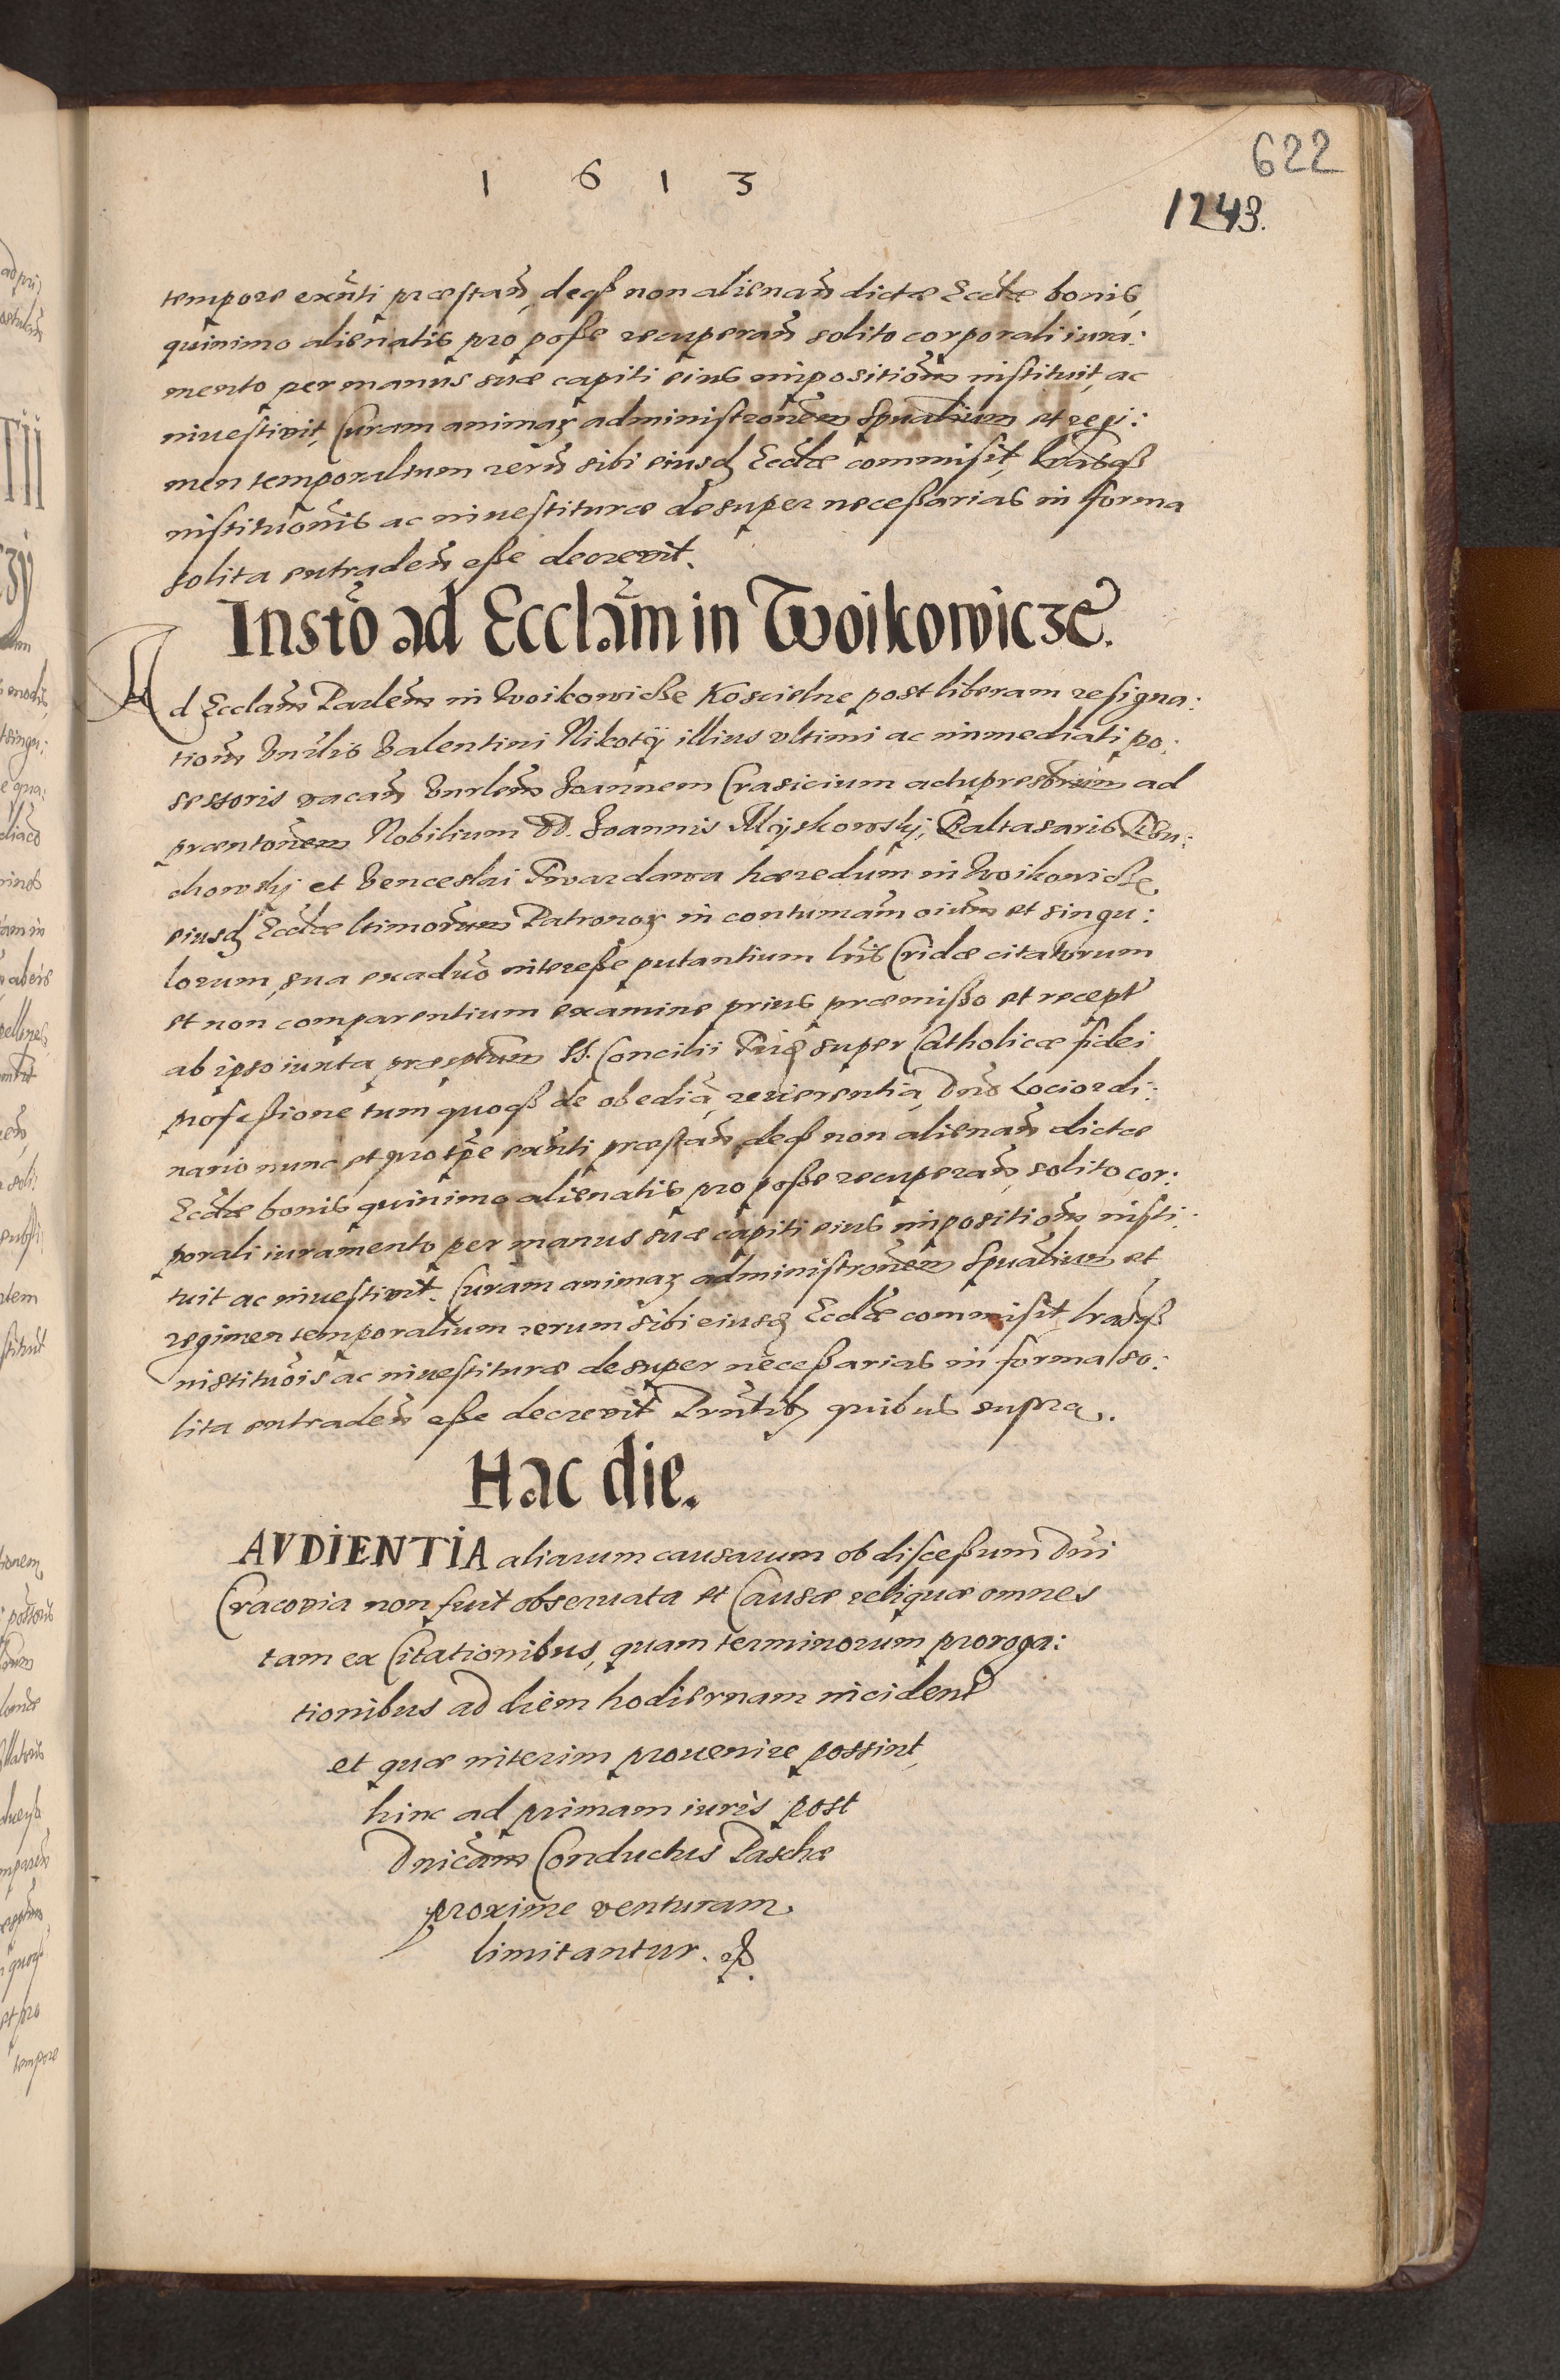 622
1 6 1 3
1243.
tempore exñti præstañ, deqß non alienañ dictæ Eccłæ bonis,
quinimo alienatis pro poße recuperañ solito corporali iura:
mento per manus suæ capiti eius impositiõem instituit, ac
inuestivit, Curam animaꝝ administrõnem Spũalium et regi:
men temporalium rerũ sibi eiusdꝫ Eccłæ commisit, Lrãsqß
institutiõnis ac inuestituræ desuper neceßarias in forma
solita extradeñ eße decrevit.
Instõ ad Ecclãm in Woikowicze.
Ad Ecclãm Parlẽm in Woikowicße Koscielne post liberam resigna:
tiõem Vnrłis Valentini Nikotij illius vltimi ac immediati po:
sessoris vacañ Vnrlẽm Joannem Crasicium actu presbrũm ad
præntõnem Nobilium DD. Joannis Mijskowskj, Baltasaris
chowskj et Venceslai Twardawa hæredum in Woikowicße
eiusdꝫ Eccłæ ltimorũm Patronoꝝ in contumãm oiũm et singu:
lorum, sua exaduõ intereße putantium lrĩs Cridæ citatorum
et non comparentium examine prius præmißo et recepta
ab ipso iuxta præptum SS. Concilii Trid super Catholicæ fidei
profeßione tum quoqß de obediã, reverentia Dño Lociordi:
nario nunc et pro tp̃e exñti præstañ, deqß non alienañ dictæ
Eccłæ bonis quinimo alienatis pro poße recuperañ, solito cor:
porali iuramento per manus suæ capiti eius impositiõem insti:
tuit ac inuestivit. Curam animaꝝ administrõnem Spũalium et
regimen temporalium rerum sibi eiusdꝫ Eccłæ commisit, lrasqß
institutiõis ac inuestituræ desuper neceßarias in forma so:
lita extradeñ eße decrevit Prñtibꝫ quibus supra.
Hac die.
AVDIENTIA aliarum causarum ob disceßum Dñi
Cracovia non fuit obseruata et Causæ reliquæ omnes
tam ex Citationibus, quam terminorum proroga:
tionibus ad diem hodiernam incident
et quæ interim prouenire possint,
hinc ad primam iuris post
Dnicãm Conductus Paschæ
proxime venturam
limitantur.